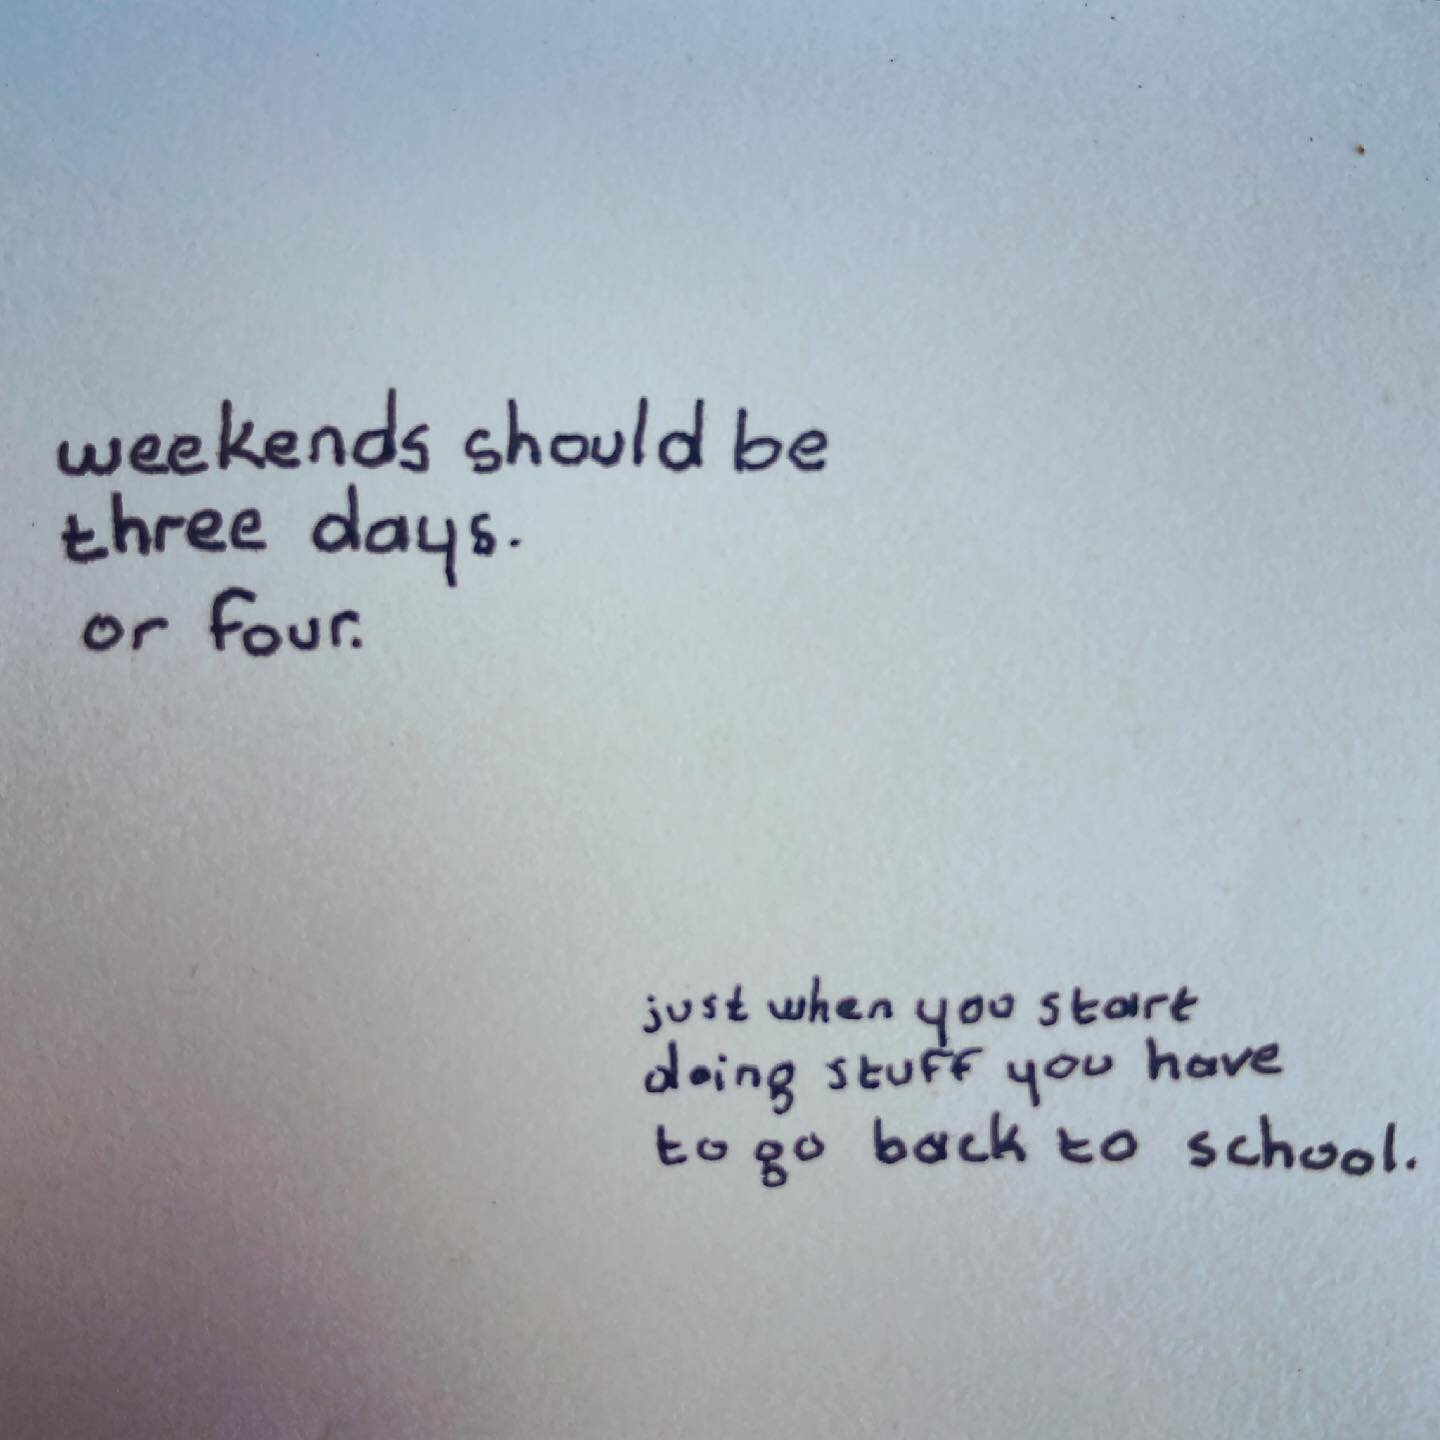 weekends should be
three days.
or four.
just when you start
doing stuff you have
to go back to school.